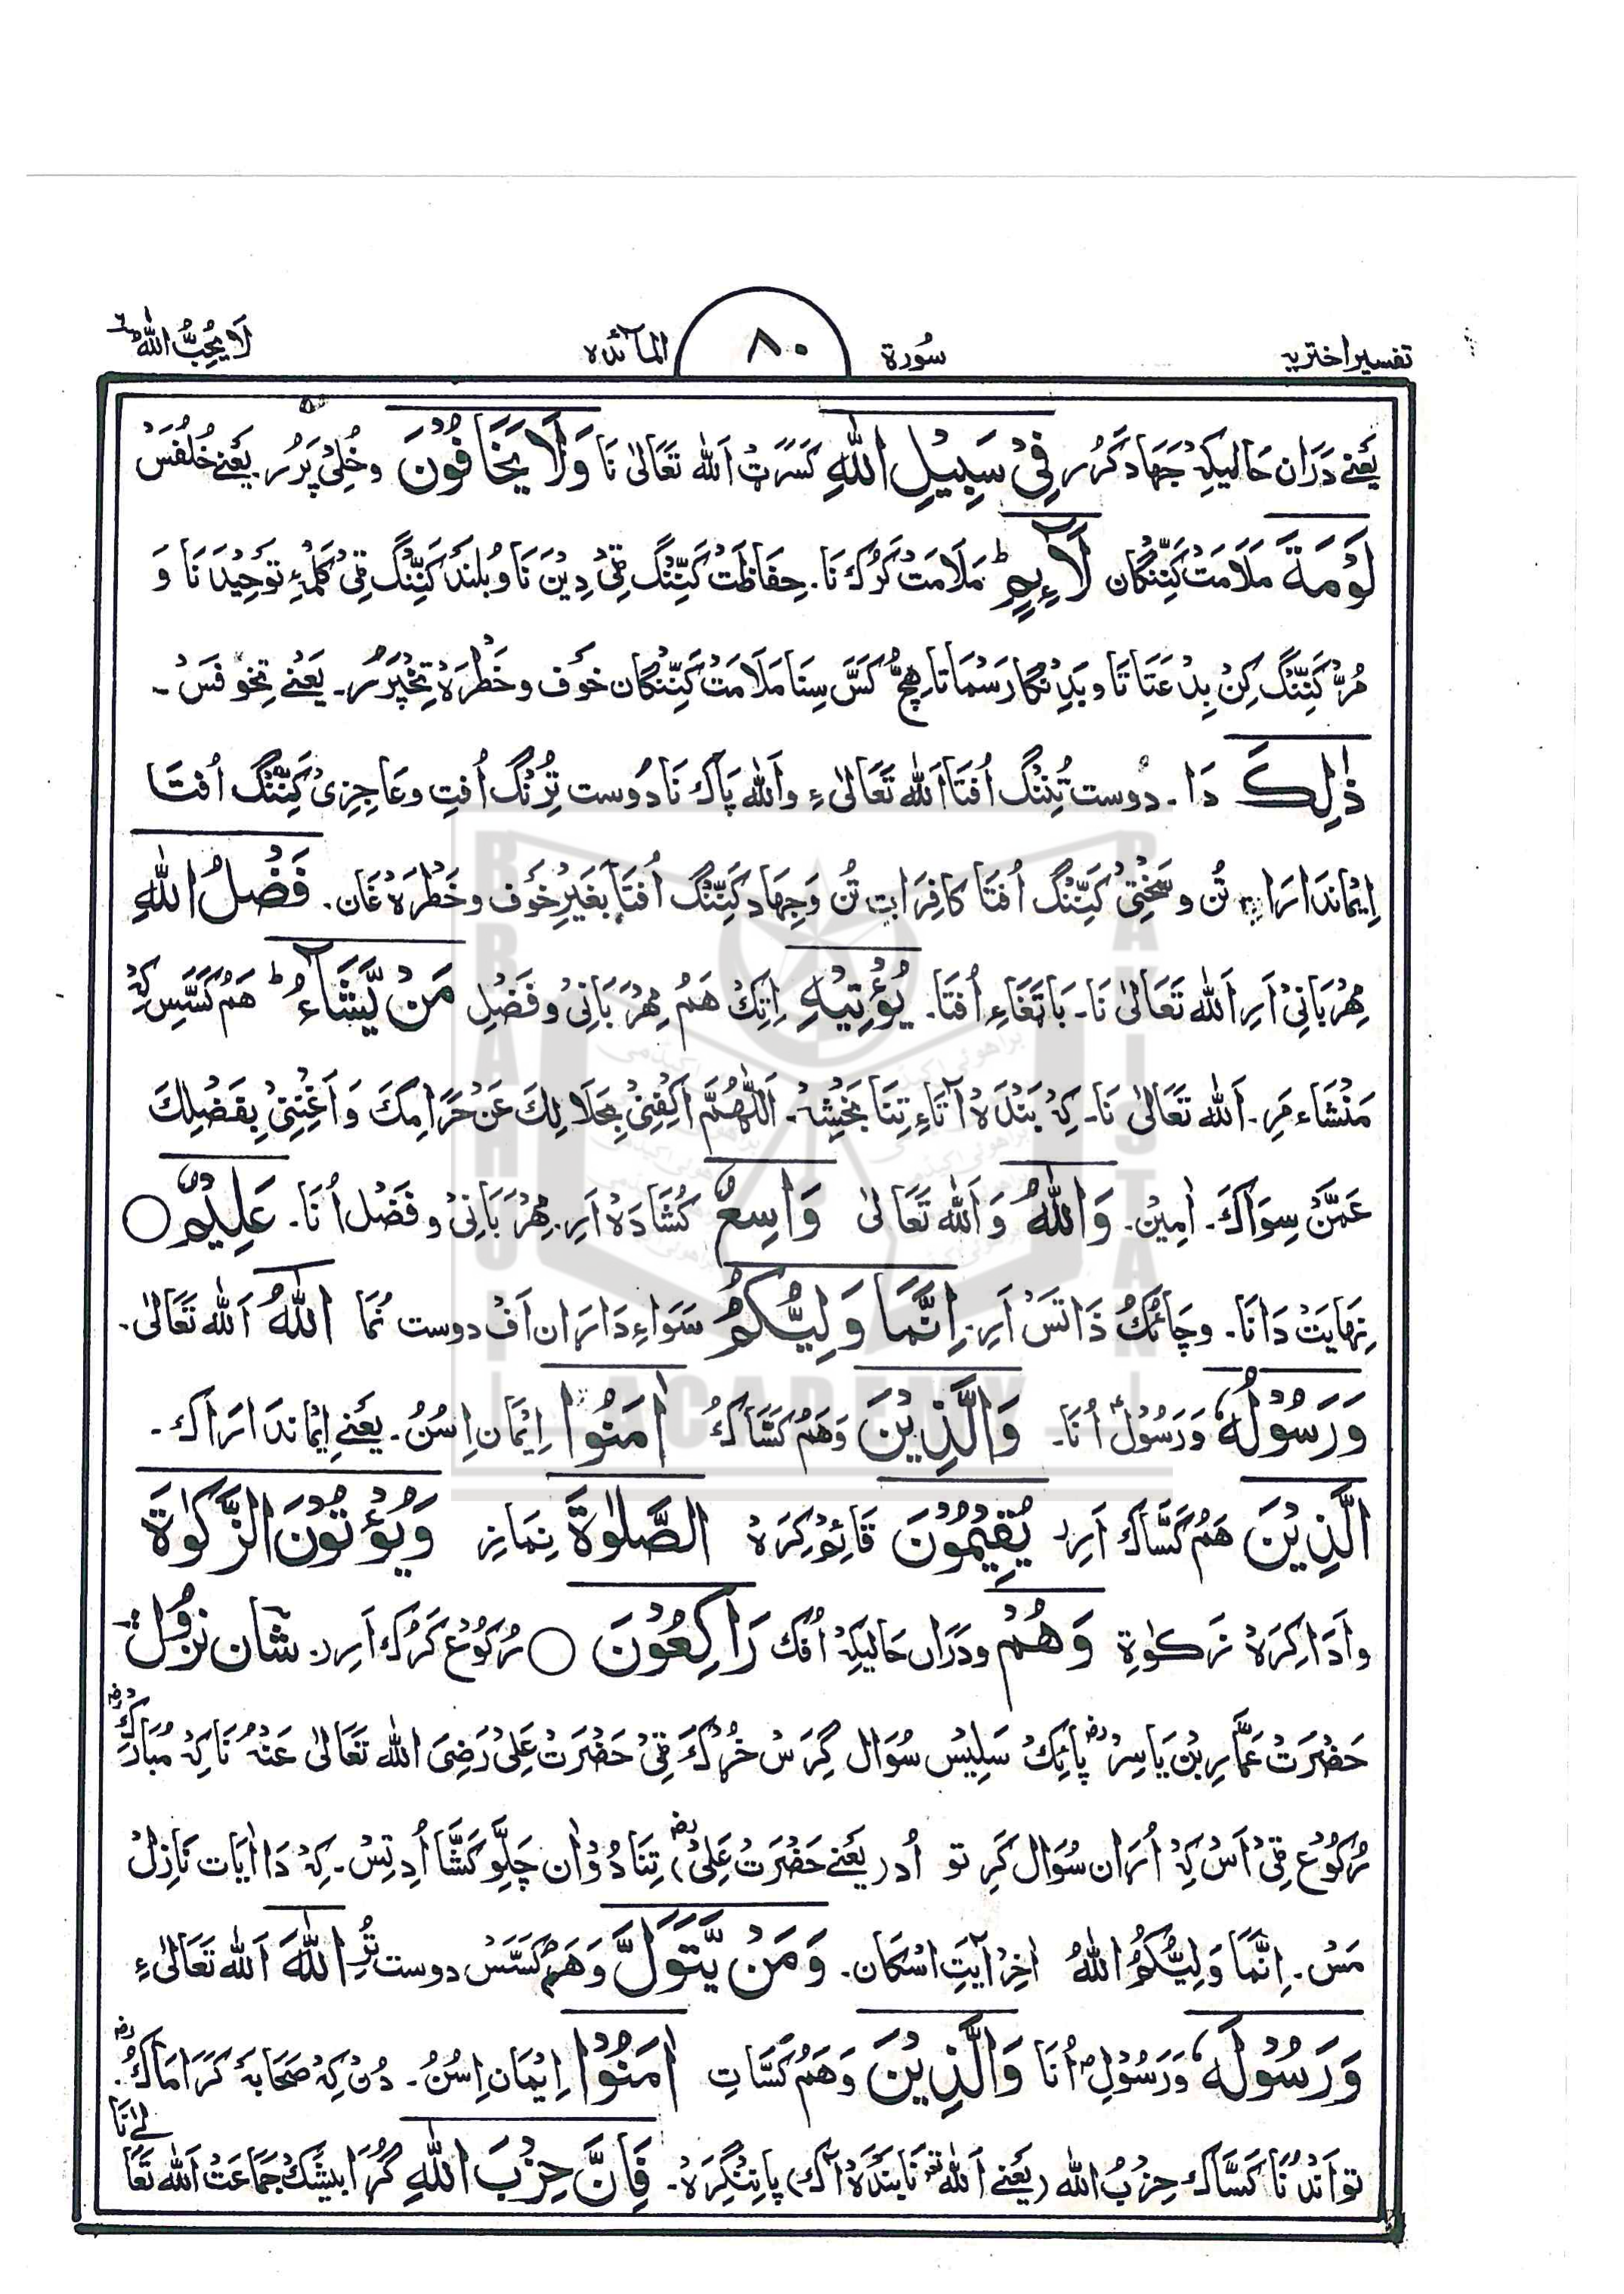 تفسیر اختریہ سُورة ٨٠ المآئدہ لَا یُحِبُّ اللّٰهُ ٦
یَعنے دَرَان حَالیکہِ جَہَاد کَرُر فِیْ سَبِیْلِ اللّٰهِ کَسَرَٹ اَللّٰه تَعَالیٰ نَا وَلَا یَخَافُوْنَ وخُلِیْ پَرُر یَعنے خُلفُسَ
لَوْمَةَ مَلَامَت کَنِّنگان لَآئِمٍ ؕ مَلَامَت کَرُک نَا۔ حِفَاظَت کَنِّنگ ٹِی دِیْن نَا و بُلَند کَنِّنگ ٹِی کَلمۂِ تَوحِید نَا وَ
مُرّ کَنِّنگ کِن بِدعَتَاتَا و بَدِنگا رَسمَاتَا ہِچّ کَسّ سِنَا مَلَامَت کَنِّنگان خَوف و خَطرَہ تِخپَرُر۔ یَعنے تِخوفَس۔
ذٰلِکَ دَا۔ دوست تِننگ اُفتَا اَللّٰه تَعَالیٰ ءِ واَللّٰه پَاک نَا دوست تِرِنگ اُفتِ و عَاجِزِی کَنِّنگ اُفتَا
اِیْماندَارَا تُن و سَختِی کَنِّنگ اُفتَا کافِرَاتِ تُن وَ جِہَاد کَنِّنگ اُفتَا بغَیرِ خَوف و خَطرَہ غَان۔ فَضْلُ اللّٰهِ
مِہْرَبَانِی اَرِ اَللّٰه تَعَالیٰ نَا۔ بَاتَغَاءِ اُفتَا۔ یُؤْتِیْهِ اِتِک ہَم مِہْرَبَانِی و فَضْلِ مَنْ یَّشَآءُ ؕ ہَم کَسَّسِ کہِ
مَنْشَاء مَرِ۔ اَللّٰه تَعَالیٰ نَا۔ کہِ بَندَہ آتَاءِ تِنَا بَخشِہ۔ اَللّٰهُمَّ اکْفِنِیْ بِحَلَالِکَ عَنْ حَرَامِکَ وَ اَغْنِنِیْ بِفَضْلِکَ
عَمَّنْ سِوَاکَ۔ اٰمِیْن۔ وَاللّٰهُ وَ اَللّٰه تَعَالیٰ وَاسِعٌ کُشَادَہ اَرِ۔ مِہْرَبَانِی و فَضْل اُنَا۔ عَلِیْمٌ ○
نِہَایَت دَانَا۔ و چَائُک ذَاتَس اَرِ۔ اِنَّمَا وَلِیُّکُمُ سَوَاءِ دَارَان اَف دوست نُمَا اللّٰهُ اَللّٰه تَعَالیٰ۔
وَرَسُوْلُهٗ وَ رَسُوْل اُنَا۔ وَالَّذِیْنَ وَ ہَم کَسَّاک اٰمَنُوا اِیْمَان اِسُن۔ یَعنے اِیْماندَارَاک۔
الَّذِیْنَ ہَم کَسَّاک اَرِر یُقِیْمُوْنَ قَائِم کِرَہ الصَّلٰوةَ نِمازِ وَیُؤْتُوْنَ الزَّکٰوةَ
وادَا کِرَہ زَکٰوةِ وَهُمْ ودَرَان حَالیکہِ اُفک رَاکِعُوْنَ ○ رُکُوْع کَرُک اَرِر۔ شَان نُزُوْل
حَضْرَت عَمَّار بِن یَاسِر پائِک سَلِیْس سُوَال کَرِس خُرُک ٹِی حَضْرَت عَلِی رَضِیَ اللّٰه تَعَالیٰ عَنْہُ نَا کہِ مُبَارَک
رُکُوْع ٹِی اَس کہِ اُرَان سُوَال کَرِ تو اُد (یَعنے حَضْرَت عَلِی) تِنَا دُوان چَلّو کَشَّا اُدِ تِس۔ کہِ دَا اٰیَات نَازِل
مَس۔ اِنَّمَا وَلِیُّکُمُ اللّٰهُ اٰخِر آیَت اِسکان۔ وَمَنْ یَّتَوَلَّ وَ ہَم کَسَّس دوست تُرِ اللّٰهَ اَللّٰه تَعَالیٰ ءِ
وَرَسُوْلَهٗ وَ رَسُوْلِ اُنَا وَالَّذِیْنَ وَ ہَم کَسَّاتِ اٰمَنُوا اِیْمَان اِسُن۔ دُن کہِ صَحَابَہ کَرَامَاک۔
تو اَندُنَا کَسَّاک حِزْبُ اللّٰه (یَعنے اَللّٰه نَا بَندَہ آک) پانِنگِرَہ۔ فَاِنَّ حِزْبَ اللّٰهِ گُرَا بیشَک جَمَاعَت اَللّٰه تَعَالیٰ نَا
BRAHUI ACADEMY PAKISTAN